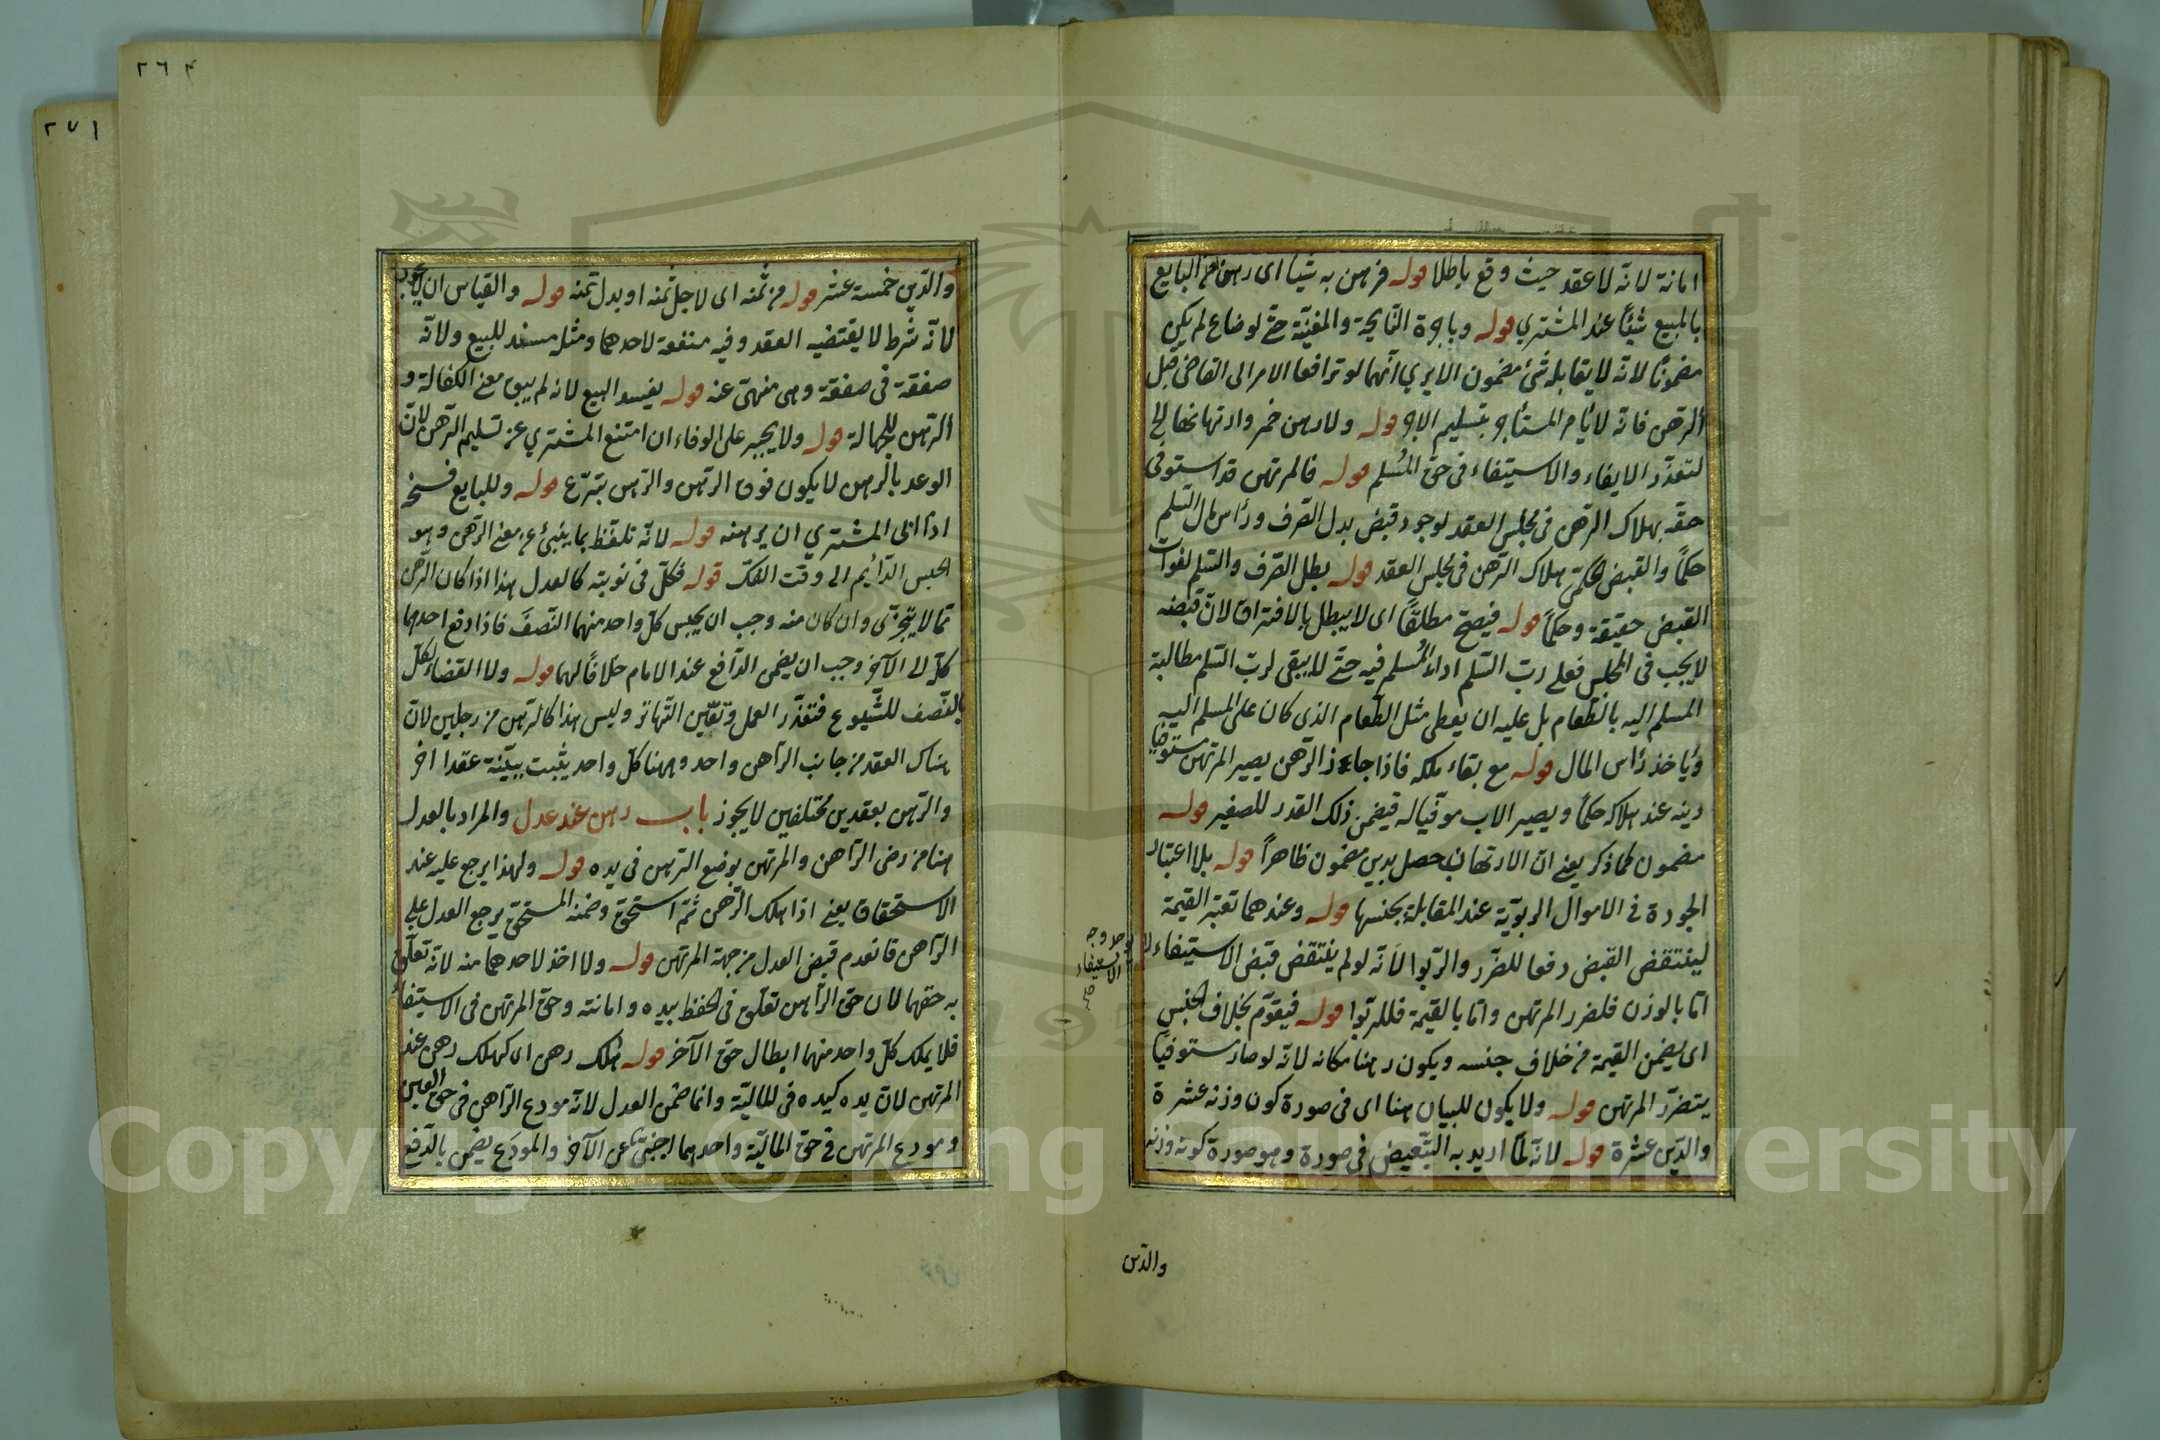 امانة لانه لا عقد حيث وقع باطلا قوله فرهن به شيئا اى رهن البايع
بالمبيع شيئا عند المشترى قوله وباجرة النايحة والمغنية حتى لو ضاع لم يكن
مضمونا لانه لا يقابله شئ مضمون الا يرى انهما لو ترافعا الامر الى القاضى قبل
الرهن فانه لا يأمر المستأجر بتسليم الاجر قوله ولا رهن خمر وارتهانها الخ
لتعذر الايفاء والاستيفاء فى حق المسلم قوله فالمرتهن قد استوفى
حقه بهلاك الرهن فى مجلس العقد لوجود قبض بدل الصرف ورأس مال السلم
حكما والقبض الحكمى هلاك الرهن فى مجلس العقد قوله بطل الصرف والسلم لفوات
القبض حقيقة وحكما قوله فيصح مطلقا اى لا يبطل بالافتراق لان قبضه
لا يجب فى المجلس فعلى رب السلم اداء المسلم فيه حتى لا يبقى لرب السلم مطالبة
المسلم اليه بالطعام بل عليه ان يعطى مثل الطعام الذى كان على المسلم اليه
ويأخذ رأس المال قوله مع بقاء ملكه فاذا جاز الرهن يصير المرتهن مستوفيا
دينه عند هلاكه حكما ويصير الاب موفيا له فيضمن ذلك القدر للصغير قوله
مضمون كما ذكر يعنى ان الارتهان حصل بدين مضمون ظاهرا قوله بلا اعتبار
الجودة فى الاموال الربوية عند المقابلة بجنسها قوله وعندهما تعتبر القيمة
لينتقض القبض دفعا للضرر والربوا لانه لو لم ينتقض قبض الاستيفاء
اما بالوزن فلضرر المرتهن واما بالقيمة فللربوا قوله فيقوم بخلاف الجنس
اى يضمن القيمة من خلاف جنسه ويكون رهنا مكانه لانه لو صار مستوفيا
يتضرر المرتهن قوله ولا يكون للبيان هنا اى فى صورة كون وزنه عشرة
والدين عشرة قوله لانه لما اريد به التبعيض فى صورة وهو صورة كونه وزنه
والدين
٢٦٤
٢٧١
والدين خمسة عشر قوله من ثمنه اى لاجل ثمنه او بدل ثمنه قوله والقياس ان لا يجوز
لانه شرط لا يقتضيه العقد وفيه منفعة لاحدهما ومثله مفسد للبيع ولانه
صفقة فى صفقة وهى منهى عنه قوله يفسد البيع لانه لم يبق معنى الكفالة و
الرهن للجهالة قوله ولا يجبر على الوفاء ان امتنع المشترى عن تسليم الرهن لان
الوعد بالرهن لا يكون فوق الرهن والرهن تبرع قوله وللبايع فسخه
اذا ابى المشترى ان يرهنه قوله لانه تلفظ بما ينبئ عن معنى الرهن وهو
الحبس الدائم الى وقت الفك قوله فكل فى نوبته كالعدل هذا اذا كان الرهن
مما لا يتجزى وان كان منه وجب ان يحبس كل واحد منهما النصف فاذا دفع احدهما
كله الى الآخر وجب ان يضمن الدافع عند الامام خلافا لهما قوله ولا القضاء لكل
بالنصف للشيوع فتعذر العمل وتعين التهاتر وليس هذا كالرهن من رجلين لان
هناك العقد من جانب الراهن واحد وههنا كل واحد يثبت ببينة عقدا آخر
والرهن بعقدين مختلفين لا يجوز باب رهن عند عدل والمراد بالعدل
هنا من رضى الراهن والمرتهن بوضع الرهن فى يده قوله ولهذا يرجع عليه عند
الاستحقاق يعنى اذا هلك الرهن ثم استحق وضمنه المستحق يرجع العدل على
الراهن فانعدم قبض العدل من جهة المرتهن قوله ولا اخذ لاحدهما منه لانه تعلق
به حقهما لان حق الراهن تعلق فى الحفظ بيده وامانته وحق المرتهن فى الاستيفاء
فلا يملك كل واحد منهما ابطال حق الآخر قوله هلك رهن اى كهلك رهن عند
المرتهن لان يده كيده فى المالية وانما ضمن العدل لانه مودع الراهن فى حق العين
ومودع المرتهن فى حق المالية واحدهما اجنبى عن الآخر والمودع يضمن بالدفع
Copyright © King Saud University